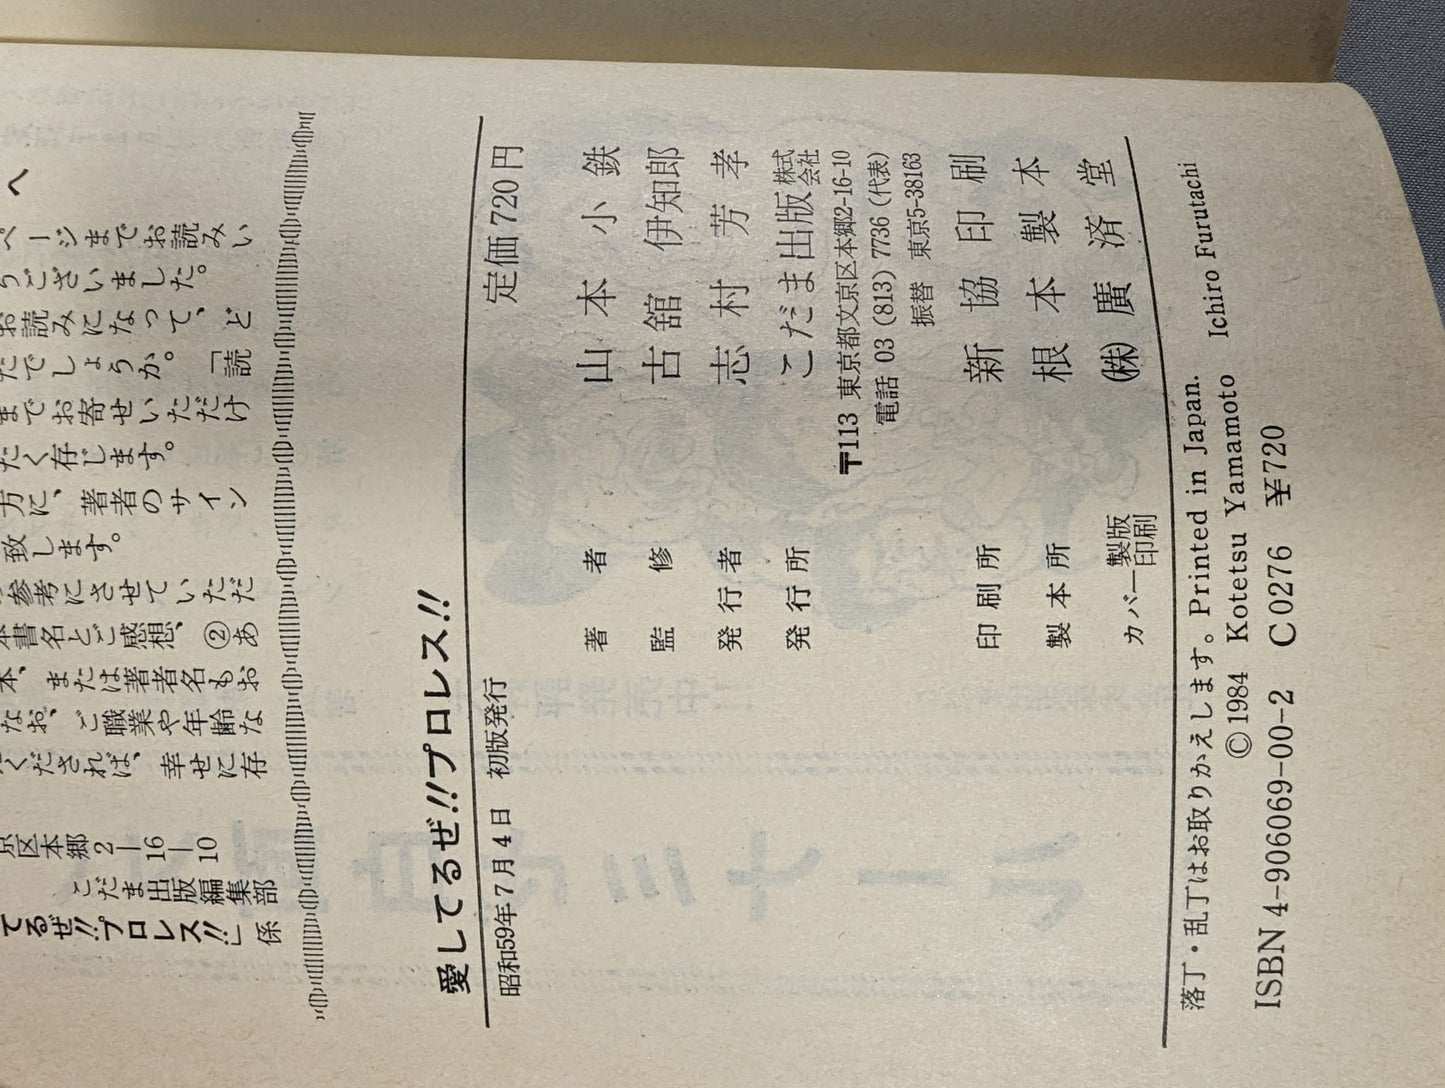 へ
ページまでお読みい
りございました。
お読みになって、ど
たでしょうか。「読
までお寄せいただけ
たく存じます。
方に、著者のサイン
致します。
参考にさせていただ
本書名とご感想、②あ
本、または著者名もお
なお、ご職業や年齢な
くだされば、幸せに存
京区本郷2—16—10
こだま出版編集部
てるぜ!!プロレス!!」係
愛してるぜ!!プロレス!!
昭和59年7月4日 初版発行 定価720円
著者 山本小鉄
監修 古舘伊知郎
発行者 志村芳孝
発行所 こだま出版株式会社
〒113 東京都文京区本郷2-16-10
電話 03 (813) 7736 (代表)
振替 東京5-38163
印刷所 新協印刷
製本所 根本製本
カバー製版印刷 (株)廣済堂
落丁・乱丁はお取りかえします。Printed in Japan.
©1984 Kotetsu Yamamoto Ichiro Furutachi
ISBN 4-906069-00-2 C0276 ¥720